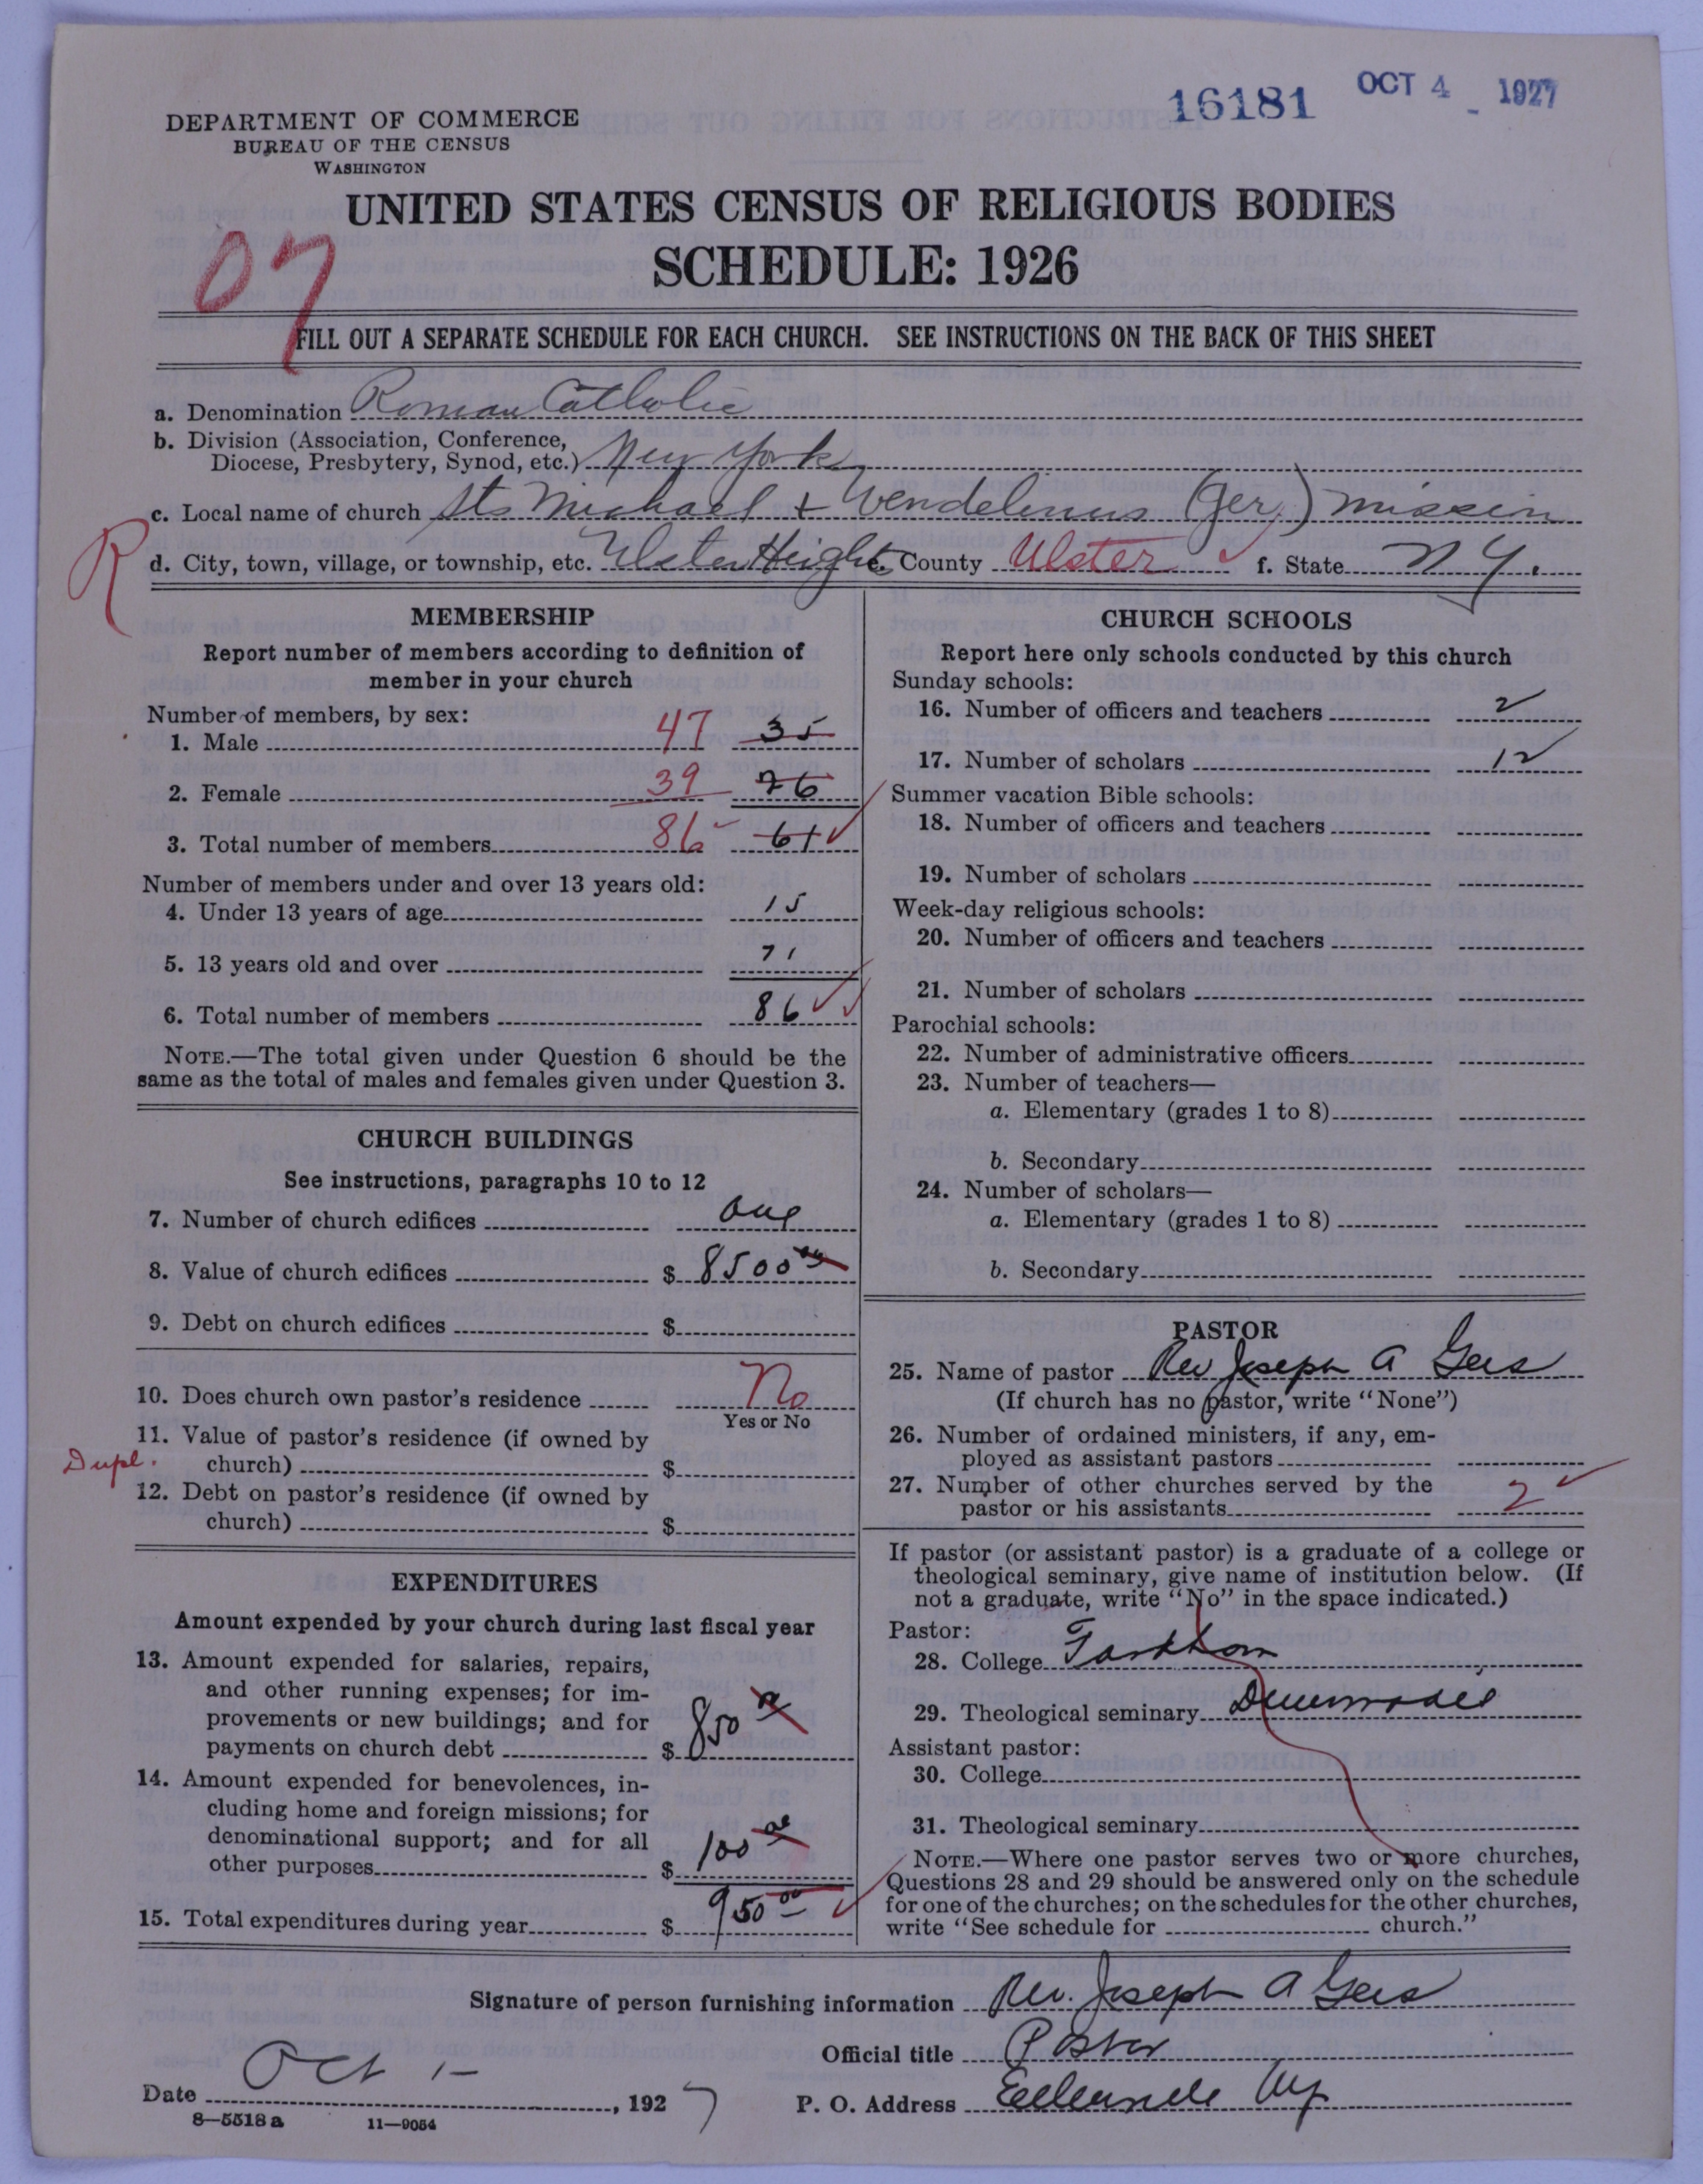 16181 OCT 4 1927
DEPARTMENT OF COMMERCE
BUREAU OF THE CENSUS
WASHINGTON
UNITED STATES CENSUS OF RELIGIOUS BODIES
SCHEDULE: 1926
07
FILL OUT A SEPARATE SCHEDULE FOR EACH CHURCH. SEE INSTRUCTIONS ON THE BACK OF THIS SHEET
a. Denomination Roman Catholic
b. Division (Association, Conference,
Diocese, Presbytery, Synod, etc.) New York
c. Local name of church Sts Michael + Wendelinus (Ger.) mission
R
d. City, town, village, or township, etc. Ulster Heights e. County Ulster f. State N Y.
MEMBERSHIP
Report number of members according to definition of
member in your church
Number of members, by sex:
1. Male 47 35
2. Female 39 26
3. Total number of members 86 61
Number of members under and over 13 years old:
4. Under 13 years of age 15
5. 13 years old and over 71
6. Total number of members 86
NOTE.—The total given under Question 6 should be the
same as the total of males and females given under Question 3.
CHURCH BUILDINGS
See instructions, paragraphs 10 to 12
7. Number of church edifices one
8. Value of church edifices $ 8500 00
9. Debt on church edifices $
10. Does church own pastor's residence No
Yes or No
11. Value of pastor's residence (if owned by
Dupl. church) $
12. Debt on pastor's residence (if owned by
church) $
EXPENDITURES
Amount expended by your church during last fiscal year
13. Amount expended for salaries, repairs,
and other running expenses; for im-
provements or new buildings; and for
payments on church debt $ 850 00
14. Amount expended for benevolences, in-
cluding home and foreign missions; for
denominational support; and for all
other purposes $ 100 00
15. Total expenditures during year $ 950 00
CHURCH SCHOOLS
Report here only schools conducted by this church
Sunday schools:
16. Number of officers and teachers 2
17. Number of scholars 12
Summer vacation Bible schools:
18. Number of officers and teachers
19. Number of scholars
Week-day religious schools:
20. Number of officers and teachers
21. Number of scholars
Parochial schools:
22. Number of administrative officers
23. Number of teachers—
a. Elementary (grades 1 to 8)
b. Secondary
24. Number of scholars—
a. Elementary (grades 1 to 8)
b. Secondary
PASTOR
25. Name of pastor Rev Joseph A Geis
(If church has no pastor, write "None")
26. Number of ordained ministers, if any, em-
ployed as assistant pastors
27. Number of other churches served by the
pastor or his assistants 2
If pastor (or assistant pastor) is a graduate of a college or
theological seminary, give name of institution below. (If
not a graduate, write "No" in the space indicated.)
Pastor:
28. College Fordham
29. Theological seminary Dunwoodie
Assistant pastor:
30. College
31. Theological seminary
NOTE.—Where one pastor serves two or more churches,
Questions 28 and 29 should be answered only on the schedule
for one of the churches; on the schedules for the other churches,
write "See schedule for church."
Signature of person furnishing information Rev. Joseph A Geis
Official title Pastor
Date Oct 1- , 1927 P. O. Address Ellenville Ny
8—5518 a 11—9054